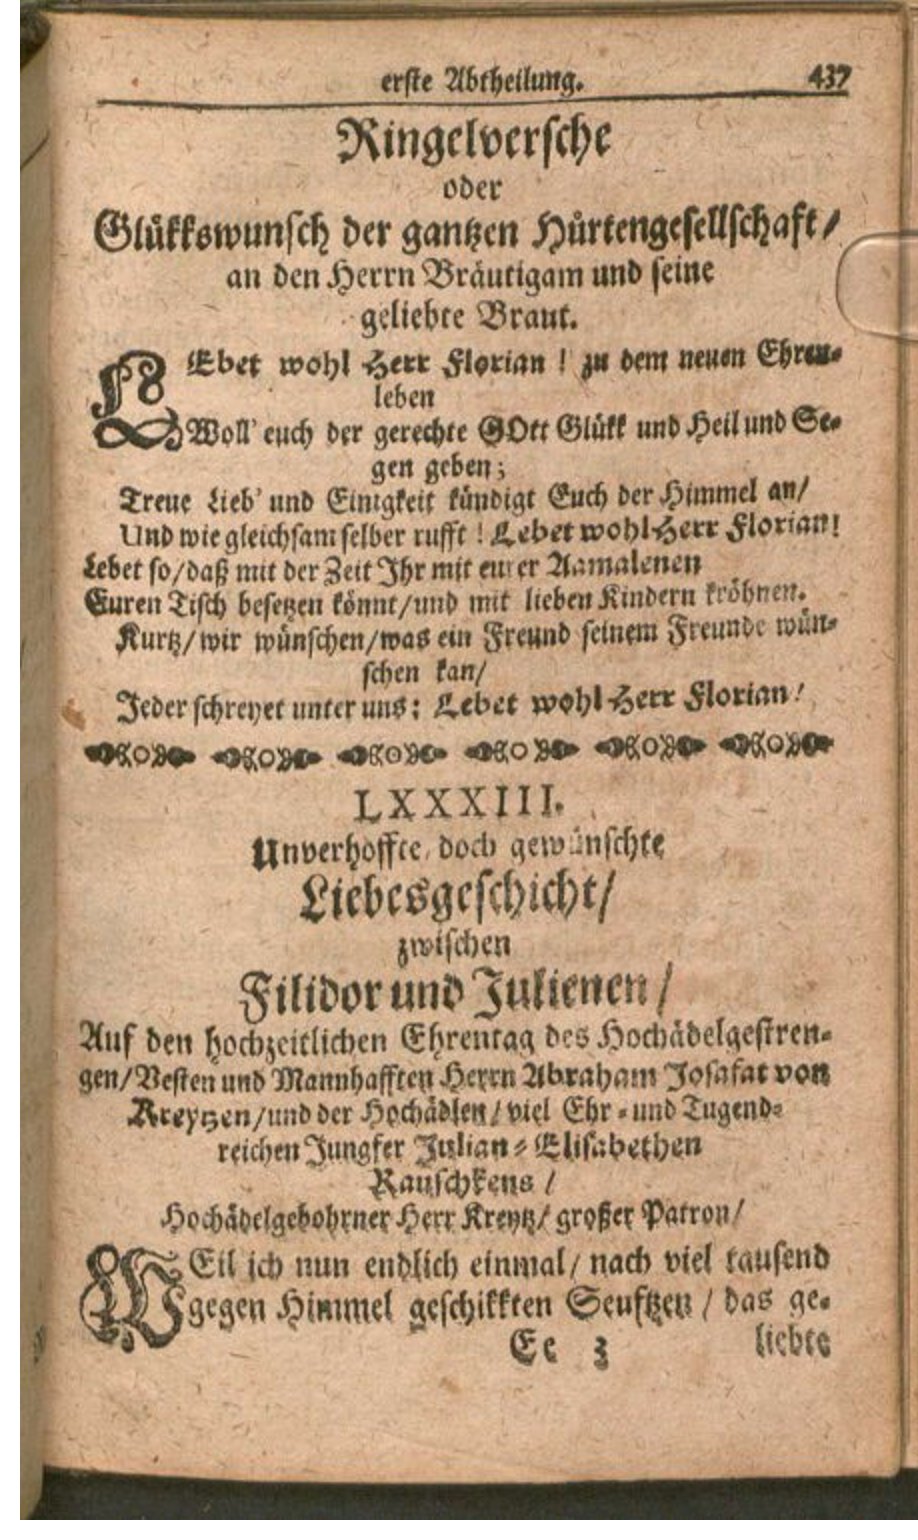 erste Abtheilung. 437
Ringelversche
oder
Glükkswunsch der gantzen Hürtengesellschaft/
an den Herrn Bräutigam und seine
geliebte Braut.
LEbet wohl Herr Florian! zu dem neuen Ehren-
leben
Woll' euch der gerechte GOtt Glükk und Heil und Se-
gen geben;
Treue Lieb' und Einigkeit kündigt Euch der Himmel an/
Und wie gleichsam selber rufft! Lebet wohl Herr Florian!
Lebet so/daß mit der Zeit Ihr mit eurer Aamalenen
Euren Tisch besetzen könnt/und mit lieben Kindern kröhnen.
Kurtz/wir wünschen/was ein Freund seinem Freunde wün-
schen kan/
Jeder schreyet unter uns: Lebet wohl Herr Florian!
LXXXIII.
Unverhoffte, doch gewünschte
Liebesgeschicht/
zwischen
Filidor und Julienen/
Auf den hochzeitlichen Ehrentag des Hochädelgestren-
gen/Vesten und Mannhafften Herrn Abraham Josafat von
Kreytzen/und der Hochädlen/viel Ehr- und Tugend-
reichen Jungfer Julian-Elisabethen
Rauschkens/
Hochädelgebohrner Herr Kreytz/großer Patron/
WEil ich nun endlich einmal/nach viel tausend
gegen Himmel geschikkten Seuftzen/das ge-
Ee 3 liebte